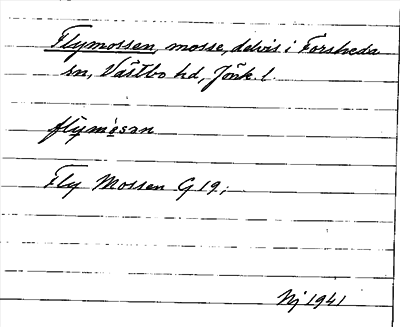 Flymossen, mosse, delvis i Forsheda
sn, Västbo hd, Jönk. l.
flỳmòsan
Fly Mossen G 19;
Nj 1941